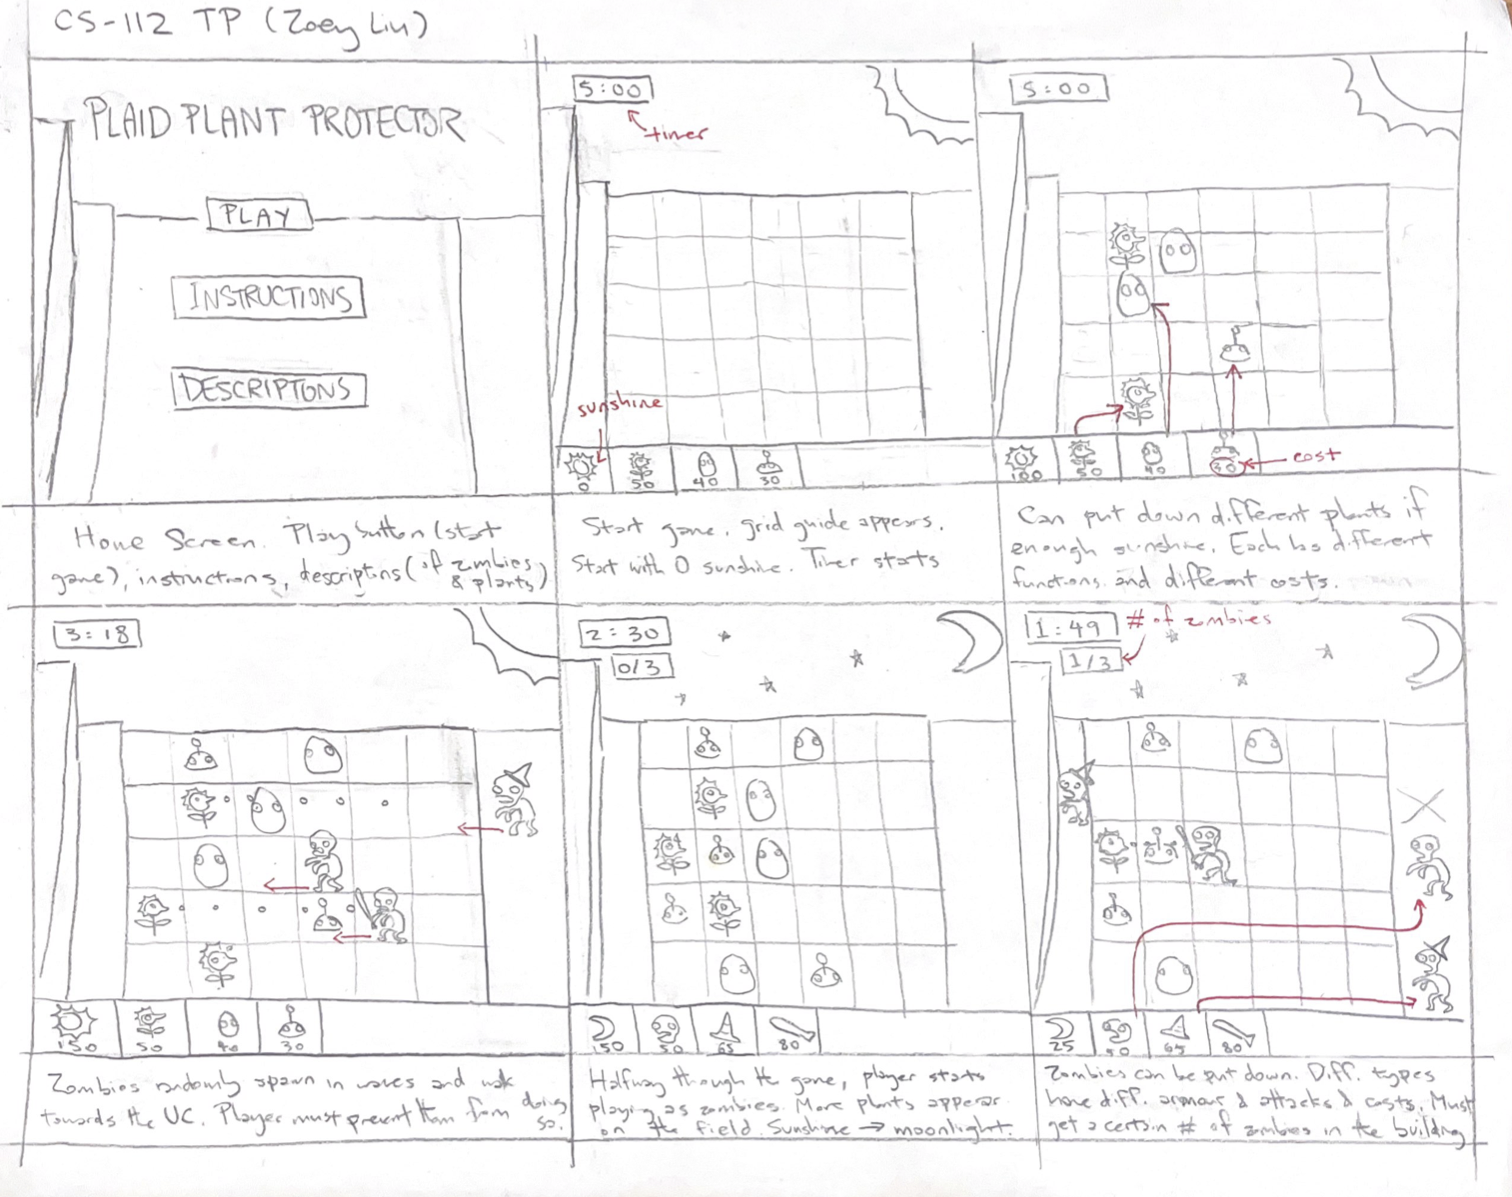 CS-112 TP (Zoey Liu)
PLAID PLANT PROTECTOR
PLAY
INSTRUCTIONS
DESCRIPTIONS
Home Screen. Play button (start
game), instructions, descriptins (of zombies
& plants)
5:00
timer
sunshine
0
50
40
30
Start game, grid guide appears.
Start with 0 sunshine. Timer starts
5:00
cost
100
50
40
30
Can put down different plants if
enough sunshine. Each has different
functions and different costs.
3:18
150
50
40
30
Zombies randomly spawn in waves and walk
towards the UC. Player must prevent them from doing
so.
2:30
0/3
150
50
65
80
Halfway through the game, player starts
playing as zombies. More plants appear
on the field. Sunshine → moonlight.
1:49
# of zombies
1/3
25
50
65
80
Zombies can be put down. Diff. types
have diff. armour & attacks & costs. Must
get a certain # of zombies in the building